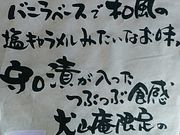 バニラベースで和風の
塩キャラメルみたいなお味。
守口漬が入った
つぶつぶ食感
犬山庵限定の